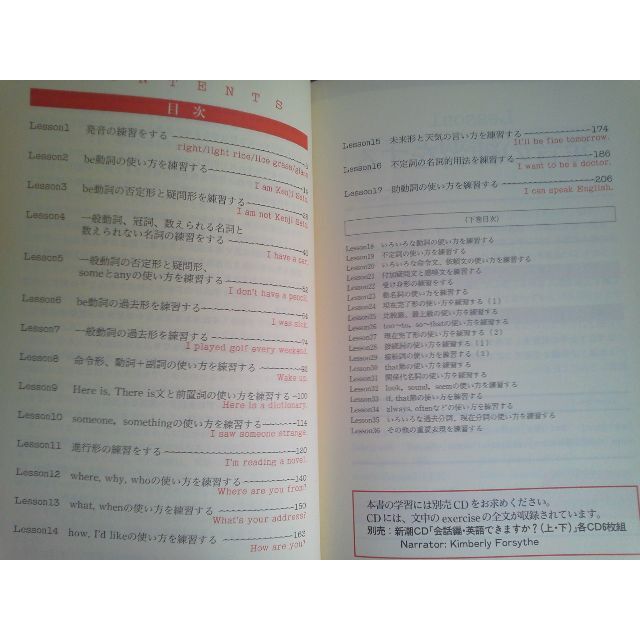 CONTENTS
目次
Lesson1 発音の練習をする
right/light rice/lice grass/glass
Lesson2 be動詞の使い方を練習する
I am Kenji Sato.
Lesson3 be動詞の否定形と疑問形を練習する
I am not Kenji Sato.
Lesson4 一般動詞、冠詞、数えられる名詞と
数えられない名詞の練習をする 40
I have a car.
Lesson5 一般動詞の否定形と疑問形、
someとanyの使い方を練習する 52
I don't have a pencil.
Lesson6 be動詞の過去形を練習する 64
I was sick.
Lesson7 一般動詞の過去形を練習する 74
I played golf every weekend.
Lesson8 命令形、動詞+副詞の使い方を練習する 92
Wake up.
Lesson9 Here is, There is文と前置詞の使い方を練習する 100
Here is a dictionary.
Lesson10 someone, somethingの使い方を練習する 114
I saw someone strange.
Lesson11 進行形の練習をする 120
I'm reading a novel.
Lesson12 where, why, whoの使い方を練習する 140
Where are you from?
Lesson13 what, whenの使い方を練習する 150
What's your address?
Lesson14 how, I'd likeの使い方を練習する 162
How are you?
Lesson15 未来形と天気の言い方を練習する 174
It'll be fine tomorrow.
Lesson16 不定詞の名詞的用法を練習する 186
I want to be a doctor.
Lesson17 助動詞の使い方を練習する 206
I can speak English.
〈下巻目次〉
Lesson18 いろいろな動詞の使い方を練習する
Lesson19 不定詞の使い方を練習する
Lesson20 いろいろな命令文、依頼文の使い方を練習する
Lesson21 付加疑問文と感嘆文を練習する
Lesson22 受け身形の練習をする
Lesson23 動名詞の使い方を練習する
Lesson24 現在完了形の使い方を練習する (1)
Lesson25 比較級、最上級の使い方を練習する
Lesson26 too~to, so~thatの使い方を練習する
Lesson27 現在完了形の使い方を練習する (2)
Lesson28 接続詞の使い方を練習する (1)
Lesson29 接続詞の使い方を練習する (2)
Lesson30 that節の使い方を練習する
Lesson31 関係代名詞の使い方を練習する
Lesson32 look, sound, seemの使い方を練習する
Lesson33 if, that節の使い方を練習する
Lesson34 always, oftenなどの使い方を練習する
Lesson35 いろいろな過去分詞、現在分詞の使い方を練習する
Lesson36 その他の重要表現を練習する
本書の学習には別売CDをお求めください。
CDには、文中のexerciseの全文が収録されています。
別売:新潮CD「会話編・英語できますか?(上・下)」各CD6枚組
Narrator: Kimberly Forsythe